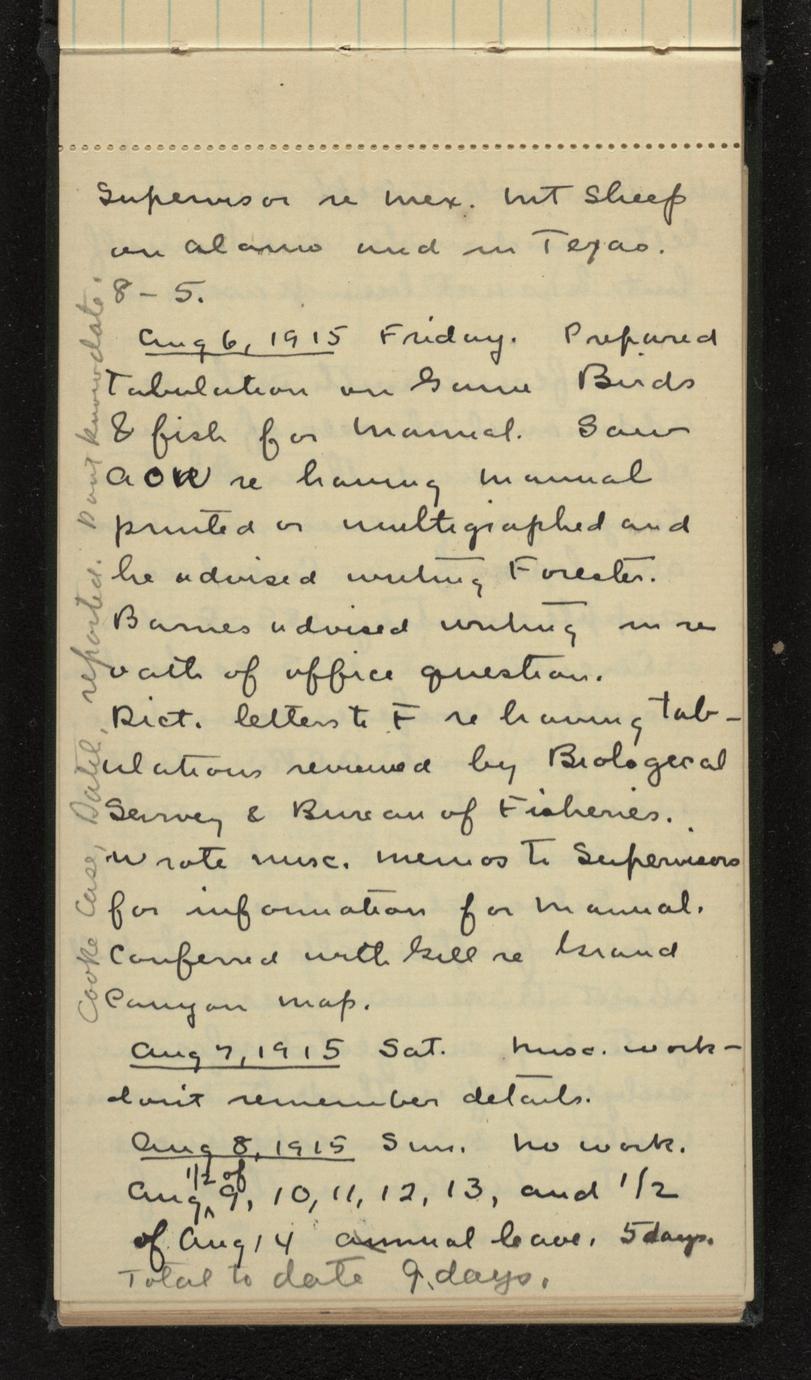 Supervisor re Mex. Mt Sheep
on Alamo and in Texas.
8 - 5.
Aug 6, 1915 Friday. Prepared
tabulation on Game Birds
& fish for Manual. Saw
AOW re having Manual
printed or multigraphed and
he advised writing Forester.
Barnes advised writing in re
oath of office question.
Dict. letters to F re having tab-
ulations reviewed by Biological
Survey & Bureau of Fisheries.
Wrote misc. memos to Supervisors
for information for Manual.
Conferred with Gill re Grand
Canyon map.
Aug 7, 1915 Sat. Misc. work -
don't remember details.
Aug 8, 1915 Sun. No work.
Aug 1/2 of 9, 10, 11, 12, 13, and 1/2
of Aug 14 annual leave. 5 days.
Total to date 9 days.
Cooke Case, Datil, reported. Don't know date.